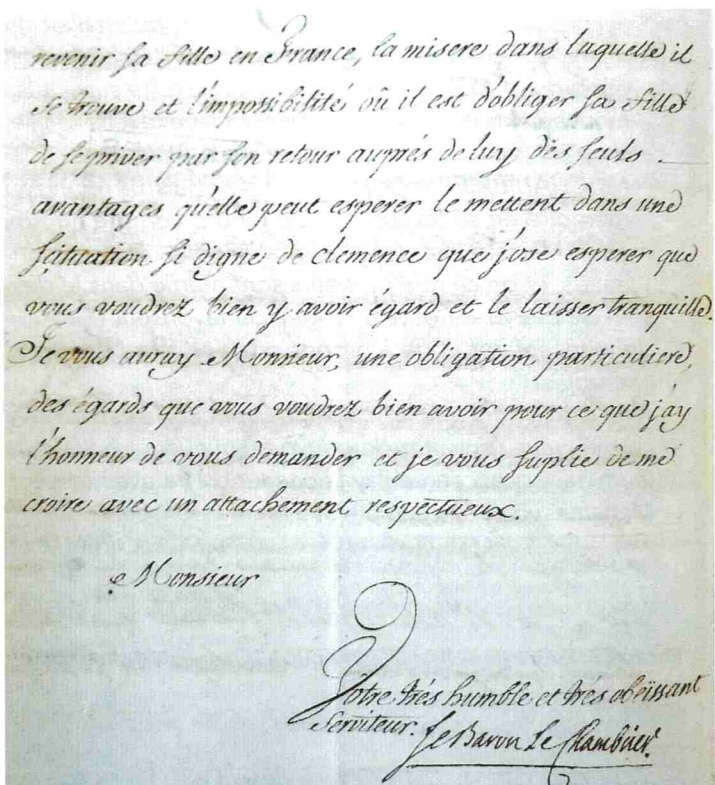 revenir sa fille en France, la misere dans laquelle il
se trouve et l'impossibilité où il est d'obliger sa fille
de se priver par son retour auprés de luy des seuls
avantages qu'elle peut esperer le mettent dans une
scituation si digne de clemence que j'ose esperer que
vous voudrez bien y avoir égard et le laisser tranquille.
Je vous auray Monsieur, une obligation particuliere,
des égards que vous voudrez bien avoir pour ce que j'ay
l'honneur de vous demander et je vous suplie de me
croire avec un attachement respectueux.
Monsieur
Votre trés humble et trés obeïssant
Serviteur. Le Baron Le Chambrier